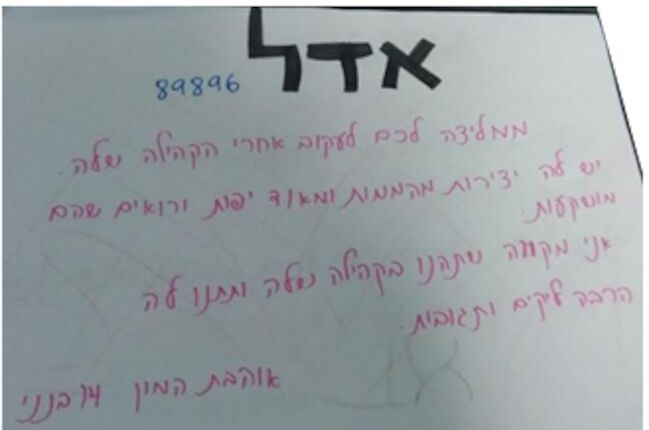 אדל
89896
ממליצה לכם לעקוב אחרי הקהילה שלה.
יש לה יצירות מהממות ומאוד יפות ורואים שהם
מושקעות.
אני מקווה שתהנו בקהילה שלה ותתנו לה
הרבה לייקים ותגובות.
אוהבת המון